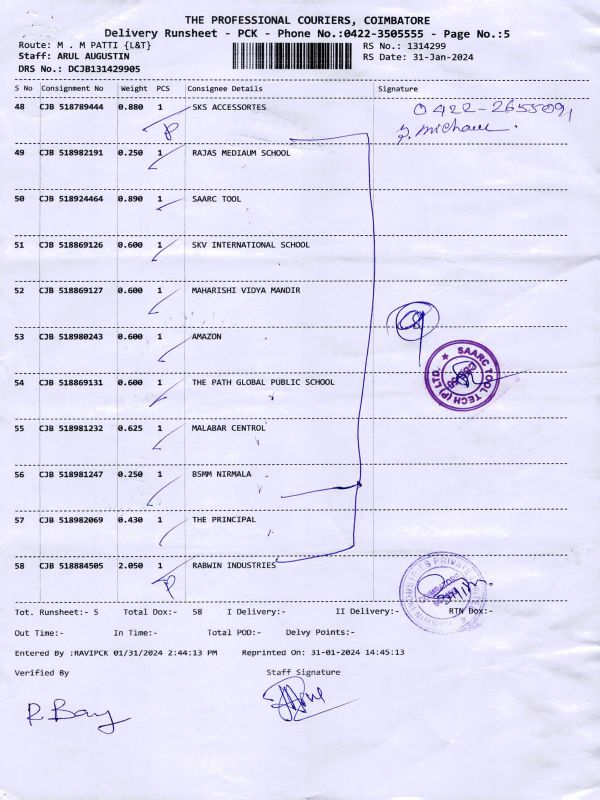 THE PROFESSIONAL COURIERS, COIMBATORE
Delivery Runsheet - PCK - Phone No.:0422-3505555 - Page No.:5
Route: M . M PATTI {L&T}
RS No.: 1314299
Staff: ARUL AUGUSTIN
RS Date: 31-Jan-2024
DRS No.: DCJB131429905
S No Consignment No Weight PCS Consignee Details Signature
48 CJB 518789444 0.880 1 SKS ACCESSORTES
0422-2655091
49 CJB 518982191 0.250 1 RAJAS MEDIAUM SCHOOL
50 CJB 518924464 0.890 1 SAARC TOOL
51 CJB 518869126 0.600 1 SKV INTERNATIONAL SCHOOL
52 CJB 518869127 0.600 1 MAHARISHI VIDYA MANDIR
53 CJB 518980243 0.600 1 AMAZON
SAARC TOOL TECH (P) LTD.
54 CJB 518869131 0.600 1 THE PATH GLOBAL PUBLIC SCHOOL
55 CJB 518981232 0.625 1 MALABAR CENTROL
56 CJB 518981247 0.250 1 BSMM NIRMALA
57 CJB 518982069 0.430 1 THE PRINCIPAL
58 CJB 518884505 2.050 1 RABWIN INDUSTRIES
Tot. Runsheet:- 5 Total Dox:- 58 I Delivery:- II Delivery:- RTN Dox:-
Out Time:- In Time:- Total POD:- Delvy Points:-
Entered By :RAVIPCK 01/31/2024 2:44:13 PM Reprinted On: 31-01-2024 14:45:13
Verified By Staff Signature